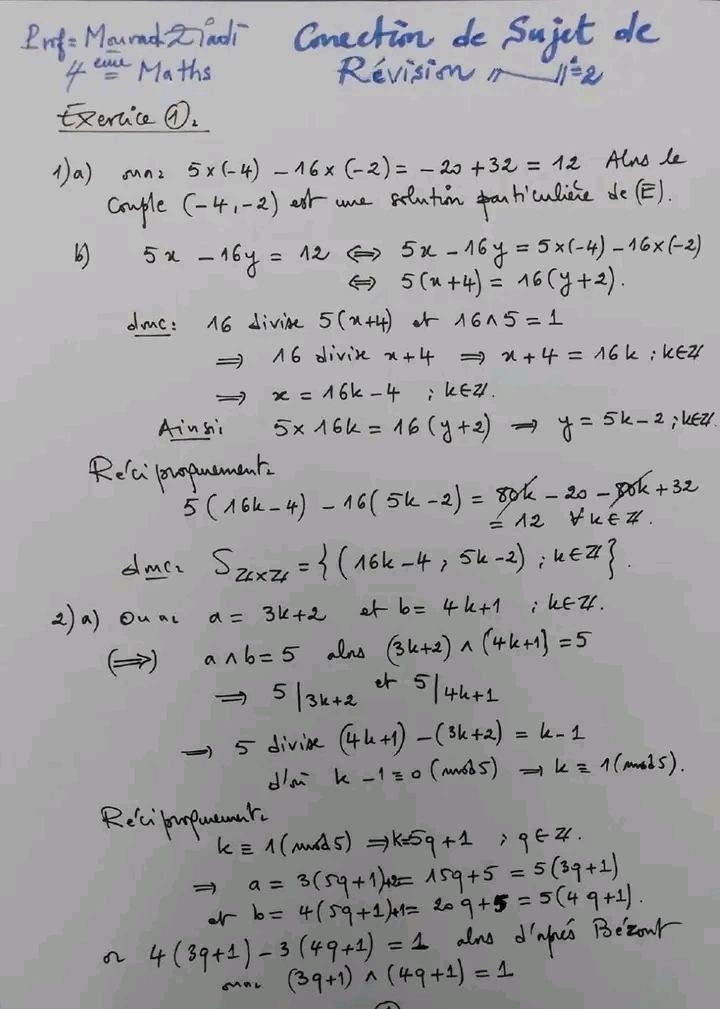 Prof = Mourad Ziadi
Correction de Sujet de
4 ème Maths
Révision n°=2
Exercice ①:
1)a) on a: 5×(-4) - 16×(-2) = -20 + 32 = 12 Alors le
Couple (-4,-2) est une solution particulière de (E).
b) 5x - 16y = 12 ⟺ 5x - 16y = 5×(-4) - 16×(-2)
⟺ 5(x+4) = 16(y+2).
donc: 16 divise 5(x+4) et 16∧5 = 1
⟹ 16 divise x+4 ⟹ x+4 = 16k ; k∈ℤ
⟹ x = 16k-4 ; k∈ℤ.
Ainsi 5×16k = 16(y+2) ⟹ y = 5k-2 ; k∈ℤ.
Réciproquement:
5(16k-4) - 16(5k-2) = 80k - 20 - 80k + 32
= 12 ∀k∈ℤ.
donc: S ℤ×ℤ = {(16k-4, 5k-2) ; k∈ℤ}.
2)a) On a: a = 3k+2 et b = 4k+1 ; k∈ℤ.
(⟹) a∧b = 5 alors (3k+2) ∧ (4k+1) = 5
⟹ 5|3k+2 et 5|4k+1
⟹ 5 divise (4k+1) - (3k+2) = k-1
d'où k-1 ≡ 0 (mod 5) ⟹ k ≡ 1 (mod 5).
Réciproquement:
k ≡ 1 (mod 5) ⟹ k = 5q+1 ; q∈ℤ.
⟹ a = 3(5q+1)+2 = 15q+5 = 5(3q+1)
et b = 4(5q+1)+1 = 20q+5 = 5(4q+1).
or 4(3q+1) - 3(4q+1) = 1 alors d'après Bézout
on a: (3q+1) ∧ (4q+1) = 1